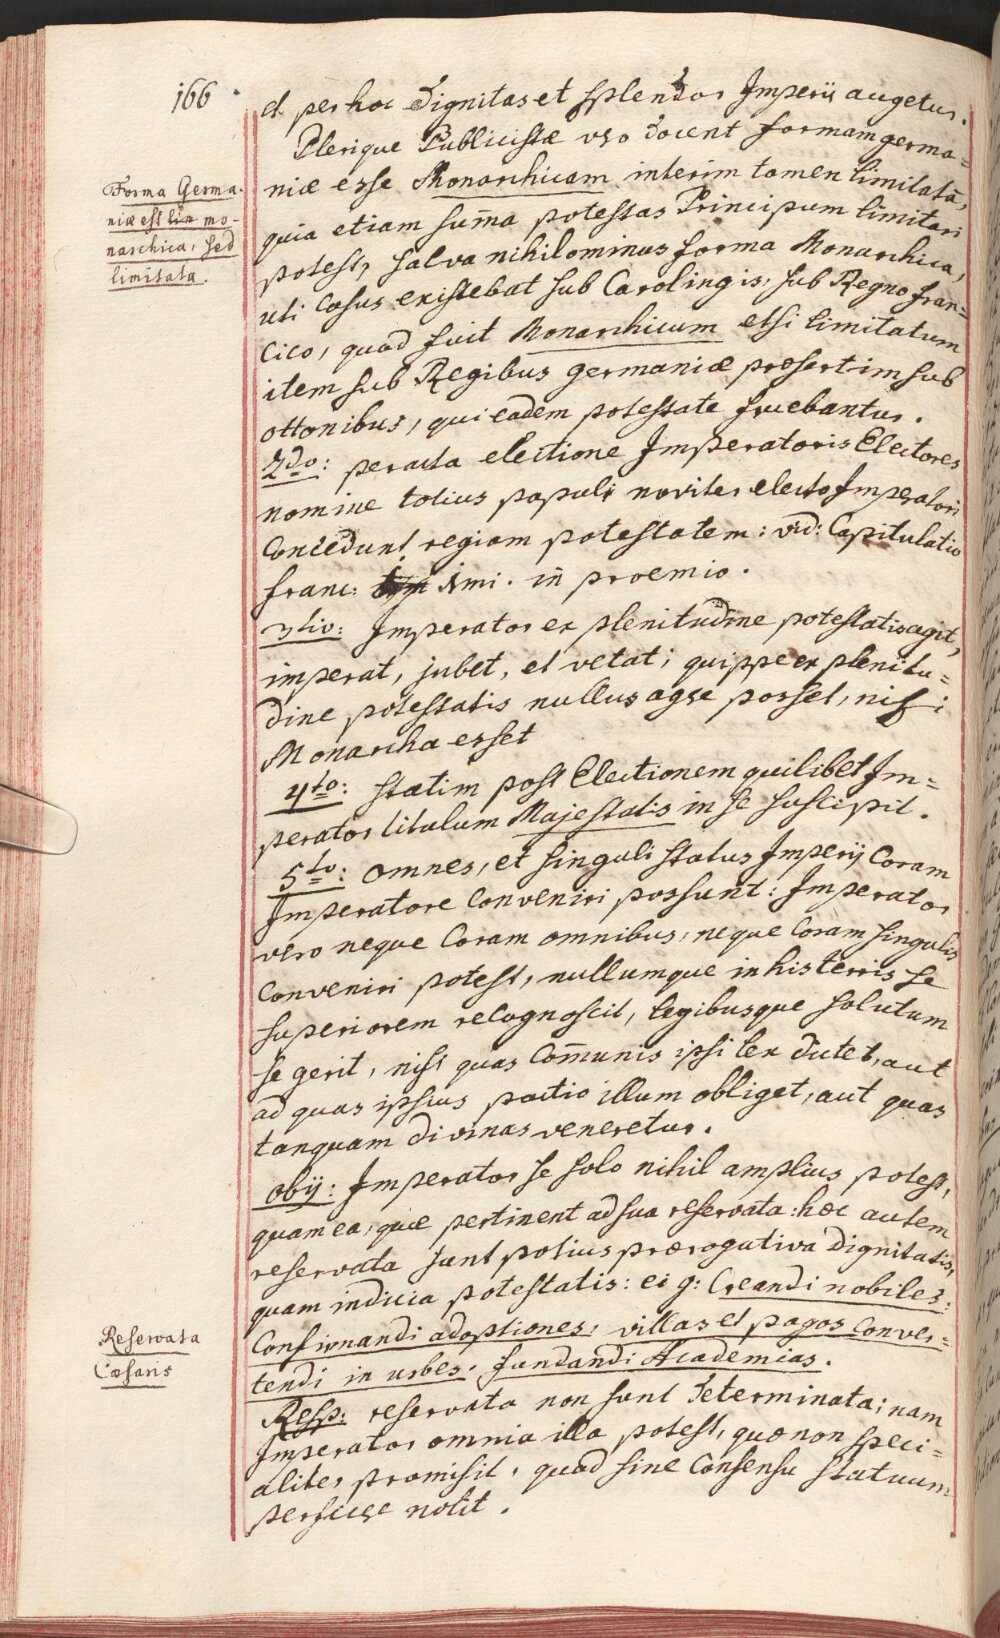 166
et per hoc Dignitas et splendor Imperii augetur.
Plerique Publicistæ vero docent formam germa=
niæ esse Monarchicam interim tamen limitatā,
quia etiam sum̄a potestas Principum limitari
potest, salva nihilominus forma Monarchica,
uti Casus existebat sub Carolingis, sub Regno fran=
cico, quod fuit Monarchicum etsi limitatum
item sub Regibus germaniæ præsertim sub
ottonibus, qui eadem potestate fruebantur.
2do: peracta electione Imperatoris Electores
nomine totius populi noviter electo Imperatori
Concedunt regiam potestatem: vid: Capitulatio
franc: Imi. in proemio.
3tio: Imperator ex plenitudine potestatis agit,
imperat, jubet, et vetat; quippe ex plenitu=
dine potestatis nullus agere posset, nisi
Monarcha esset
4to: statim post Electionem quilibet Im=
perator titulum Majestatis in se suscipit.
5to: omnes, et singuli status Imperij Coram
Imperatore Conveniri possunt: Imperator
vero neque Coram omnibus, neque Coram singulis
Conveniri potest, nullumque in his terris se
superiorem recognoscit, legibusque solutum
se gerit, nisi quas Com̄unis ipsi lex dictet, aut
ad quas ipsius pactio illum obliget, aut quas
tanquam divinas veneretur.
obij: Imperator se solo nihil amplius potest,
quam ea, quæ pertinent ad sua reservata: hæc autem
reservata sunt potius prærogativa Dignitatis,
quam indicia potestatis: e: g: Creandi nobiles:
Confirmandi adoptiones, villas et pagos Conver=
tendi in urbes, fundandi Academias.
Resp: reservata non sunt determinata; nam
Imperator omnia illa potest, quæ non speci=
aliter promisit, quod sine Consensu statuum
perficere nolit.
Forma Germa-
niæ est
mo-
narchica, sed
limitata.
Reservata
Cæsaris